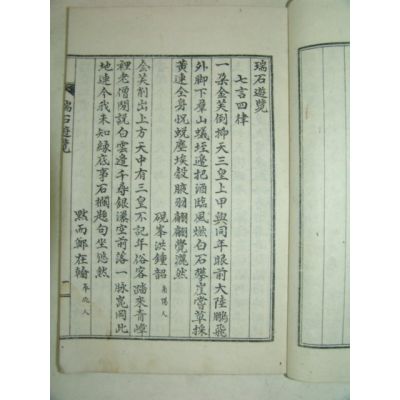 瑞石遊覽
七言四律
一朶金芙倒抑天三皇上甲與同年眼前大陸鵬飛
外脚下羣山蟻垤邊把酒臨風燃白石攀崖嘗草採
黃連全身恍蛻塵埃殼腋羽翩翩覺灑然
硯峯洪鍾韶 南陽人
金芙削出上方天中有三皇不記年俗客踏來青嶂
裡老僧閒說白雲邊千尋銀瀑空前落一脉崑岡此
地連今我未知緣底事石欄題句坐悠然
默而鄭在翰
瑞石遊覽